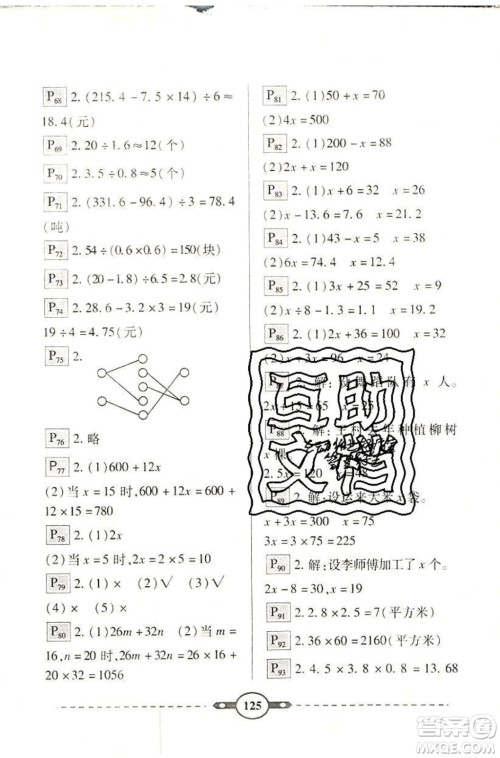 P68 2. (215.4-7.5×14)÷6≈
18.4(元)
P69 2. 20÷1.6≈12(个)
P70 2. 3.5÷0.8≈5(个)
P71 2. (331.6-96.4)÷3=78.4
(吨)
P72 2. 54÷(0.6×0.6)=150(块)
P73 2. (20-1.8)÷6.5=2.8(元)
P74 2. 28.6-3.2-6.4=19(元)
19÷4=4.75(元)
P75 2.
P76 2. 略
P77 2. (1)600+12x
(2)当 x=15 时,600+12x=600+
12×15=780
P78 2. (1)2x
(2)当 x=25 时,2x=2×25=50
P79 2. (1)× (2)√ (3)√
(4)× (5)×
P80 2. (1)26m+32n (2)当 m=
16,n=20 时,26m+32n=26×16+
32×20=1056
P81 2. (1)50+x=70
(2)4x=500
P82 2. (1)200-x=88
(2)2x+x=120
P83 2. (1)x+6=32 x=26
(2)x-1.2=20 x=21.2
P84 2. (1)43-x=5 x=38
(2)6x=74.4 x=12.4
P85 2. (1)3x+25=52 x=9
(2)x÷8-1.3=2 x=26.4
P86 2. (1)2x+36=100 x=32
(2)x+3x=96 x=24
2. 解:
队有 x 人。
2x+15=65 x=25
P88
年种植柳树
x 棵
2.5x=120 x=48
2. 解:设运来大米 x 袋。
x+3x=300 x=75
3x=3×75=225
P90 2. 解:设李师傅加工了 x 个。
2x-8=30 x=19
P91 2. 2.8×2.5=7(平方米)
P92 2. 36×60=2160(平方米)
P93 2. 4.5×3.8×0.8=13.68
互助
文信
125
答案圈
MXQE.COM